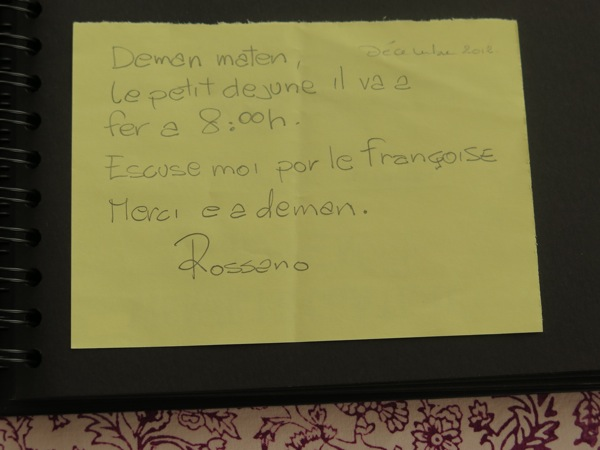 Deman maten,
Décembre 2012
le petit dejune il va a
fer a 8:00h.
Escuse moi por le françoise
Merci e a deman.
Rossano